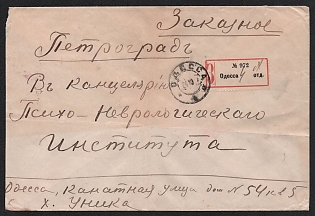 Заказное
Петроградъ
Въ канцелярію
Психо-Неврологическаго
Института
ОДЕССА
№ 972
Одесса отд.
Одесса, Канатная улица дом N 54 кв 5
х. Уника